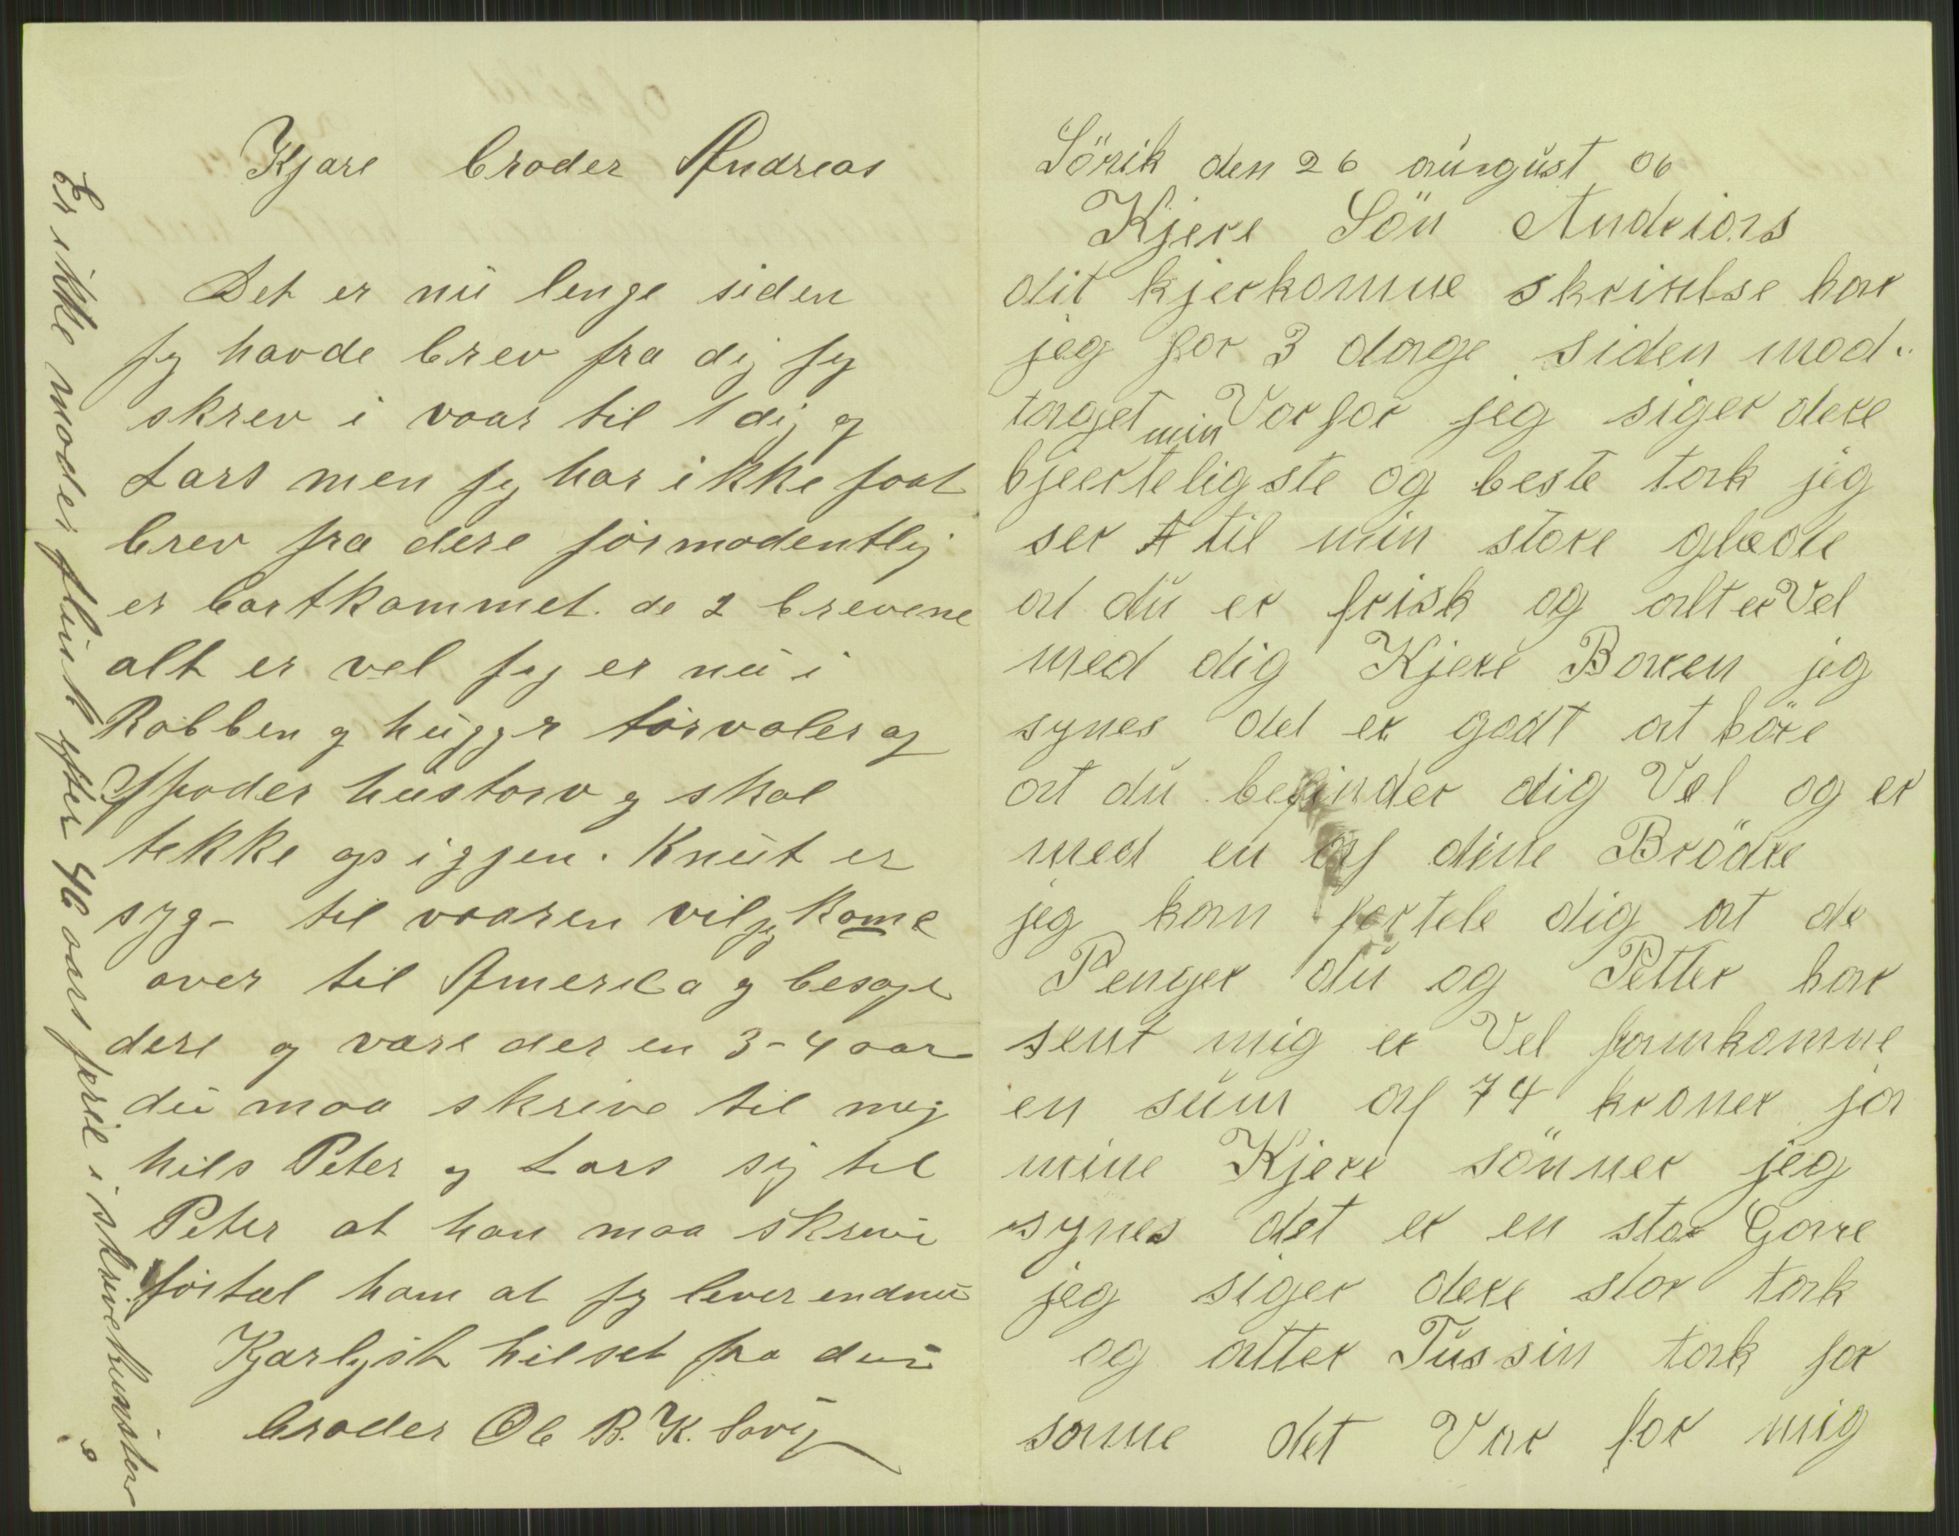 Kjære broder Andreas
Det er nu lenge siden
jeg havde brev fra dig jeg
skrev i vaar til 1 dig og
Lars men jeg har ikke faat
brev fra dere formodentlig
er bortkommet. de 2 brevene
alt er vel jeg er nu i
Robben og hugger torvoler og
spoder hustorv og skal
tekke op iggjen. Knut er
syg - til vaaren vil jeg kome
over til America og besøge
dere og være der en 3-4 aar
du maa skrive til mig
hils Peter og Lars sig til
Peter at han maa skrive
fortæl ham at jeg lever endnu
Kjærligst hilset fra din
broder Ole B. K. Søvig
Er ikke moder flink efter 40 aars ferie i skrivekunsten ?
Sörik den 26 aungust 06
Kjere Sön Andrias
dit kjerkomne skrivelse har
jeg for 3 dage siden mod..
taget Vorfor jeg siger dere
min
hjerteligste og beste tak jeg
ser til min store glæde
at du er frisk og alt er Vel
med dig Kjere Baren jeg
synes det er godt at höre
at du befinder dig Vel og er
med en af dine Brödre
jeg kan fortele dig at de
Penger du og Petter har
sent mig er Vel framkomne
en sum af 74 kroner ja
mine Kjere sönner jeg
synes det er en stor Gave
jeg siger dere stor tak
og atter Tussin tak for
same det Var for mig